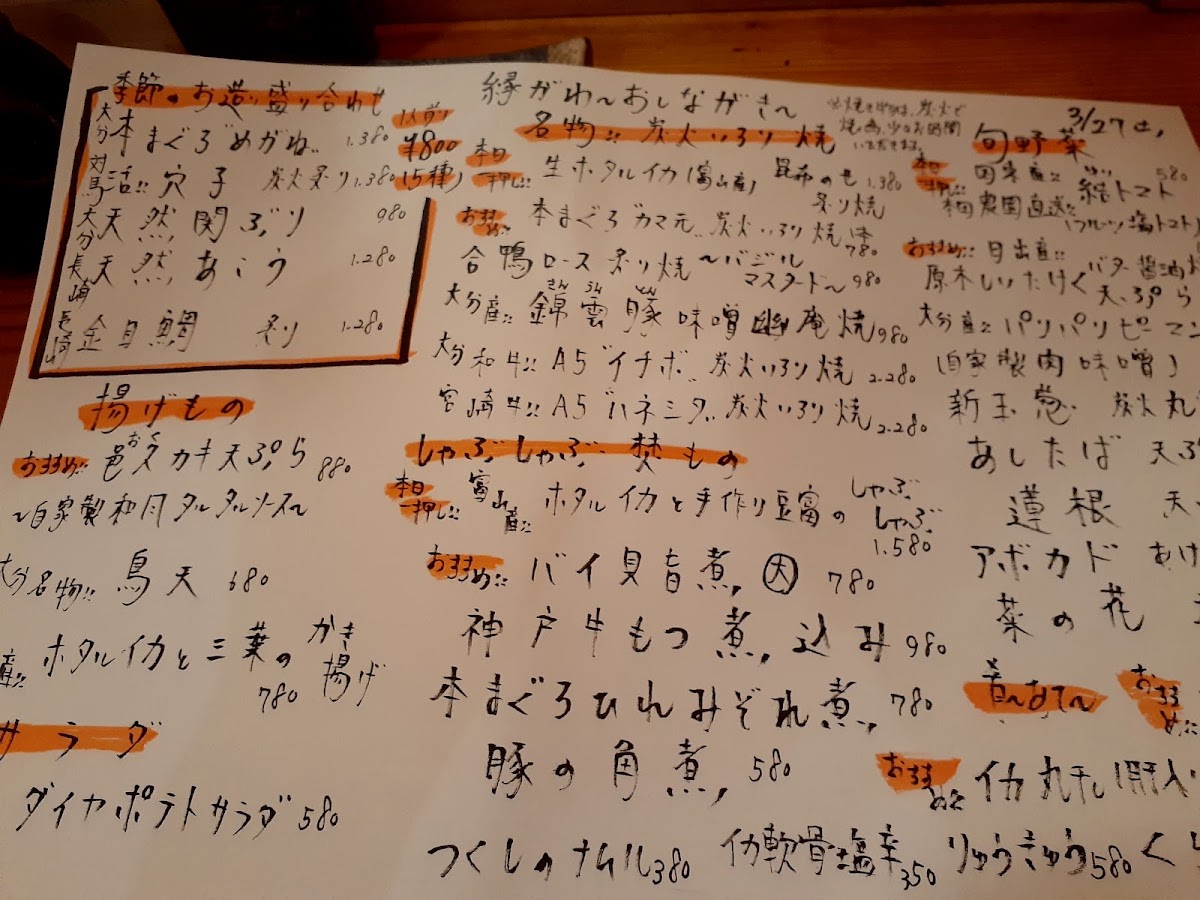 季節のお造り盛り合わせ
1人前
¥1800
(5種)
大分 本まぐろめがね 1.380
対馬 活〃 穴子 炭火炙り 1.380
大分 天然関ぶり 980
長崎 天然あこう 1.280
長崎 金目鯛 炙り 1.280
揚げもの
おすすめ〃 邑久カキ天ぷら 880
おく
〜自家製和風タルタルソース〜
大分名物〃 鳥天 680
産〃 ホタルイカと三葉のかき揚げ 780
サラダ
ダイヤポテトサラダ 580
縁がわ〜おしながき〜
名物〃 炭火いろり焼
※焼き物は、炭火で
焼く為、少々お時間
いただきます。
本日一押し〃 生ホタルイカ(富山産) 昆布のせ炙り焼 1.380
おすすめ〃 本まぐろカマ元〃 炭火いろり焼 1本 780
合鴨ロース炙り焼〜バジルマスタード〜 980
大分産〃 錦雲豚味噌幽庵焼 980
きん うん とん
大分和牛〃 A5"イチボ" 炭火いろり焼 2.280
宮崎牛〃 A5"ハネミダ" 炭火いろり焼 2.280
しゃぶしゃぶ・焚もの
本日一押し〃 富山産〃 ホタルイカと手作り豆富のしゃぶしゃぶ 1.580
おすすめ〃 バイ貝旨煮 大 780
神戸牛もつ煮込み 980
本まぐろひれみぞれ煮 780
豚の角煮 580
つくしのナムル 380
イカ軟骨塩辛 350
りゅうきゅう 580
3/27 土
旬野菜
本日一押し〃 日米産〃 塩トマト 580
農園直送〃
(フルーツ塩トマト)
おすすめ〃 日出産〃
原木しいたけ バター醤油
天ぷら
大分産〃 パリパリピーマン
(自家製肉味噌)
新玉葱 炭火丸
あしたば 天ぷ
蓮根 天
アボカド あげ
菜の花
肴〜あて〜
おすすめ〃
おすすめ〃 イカ丸干し(肝入